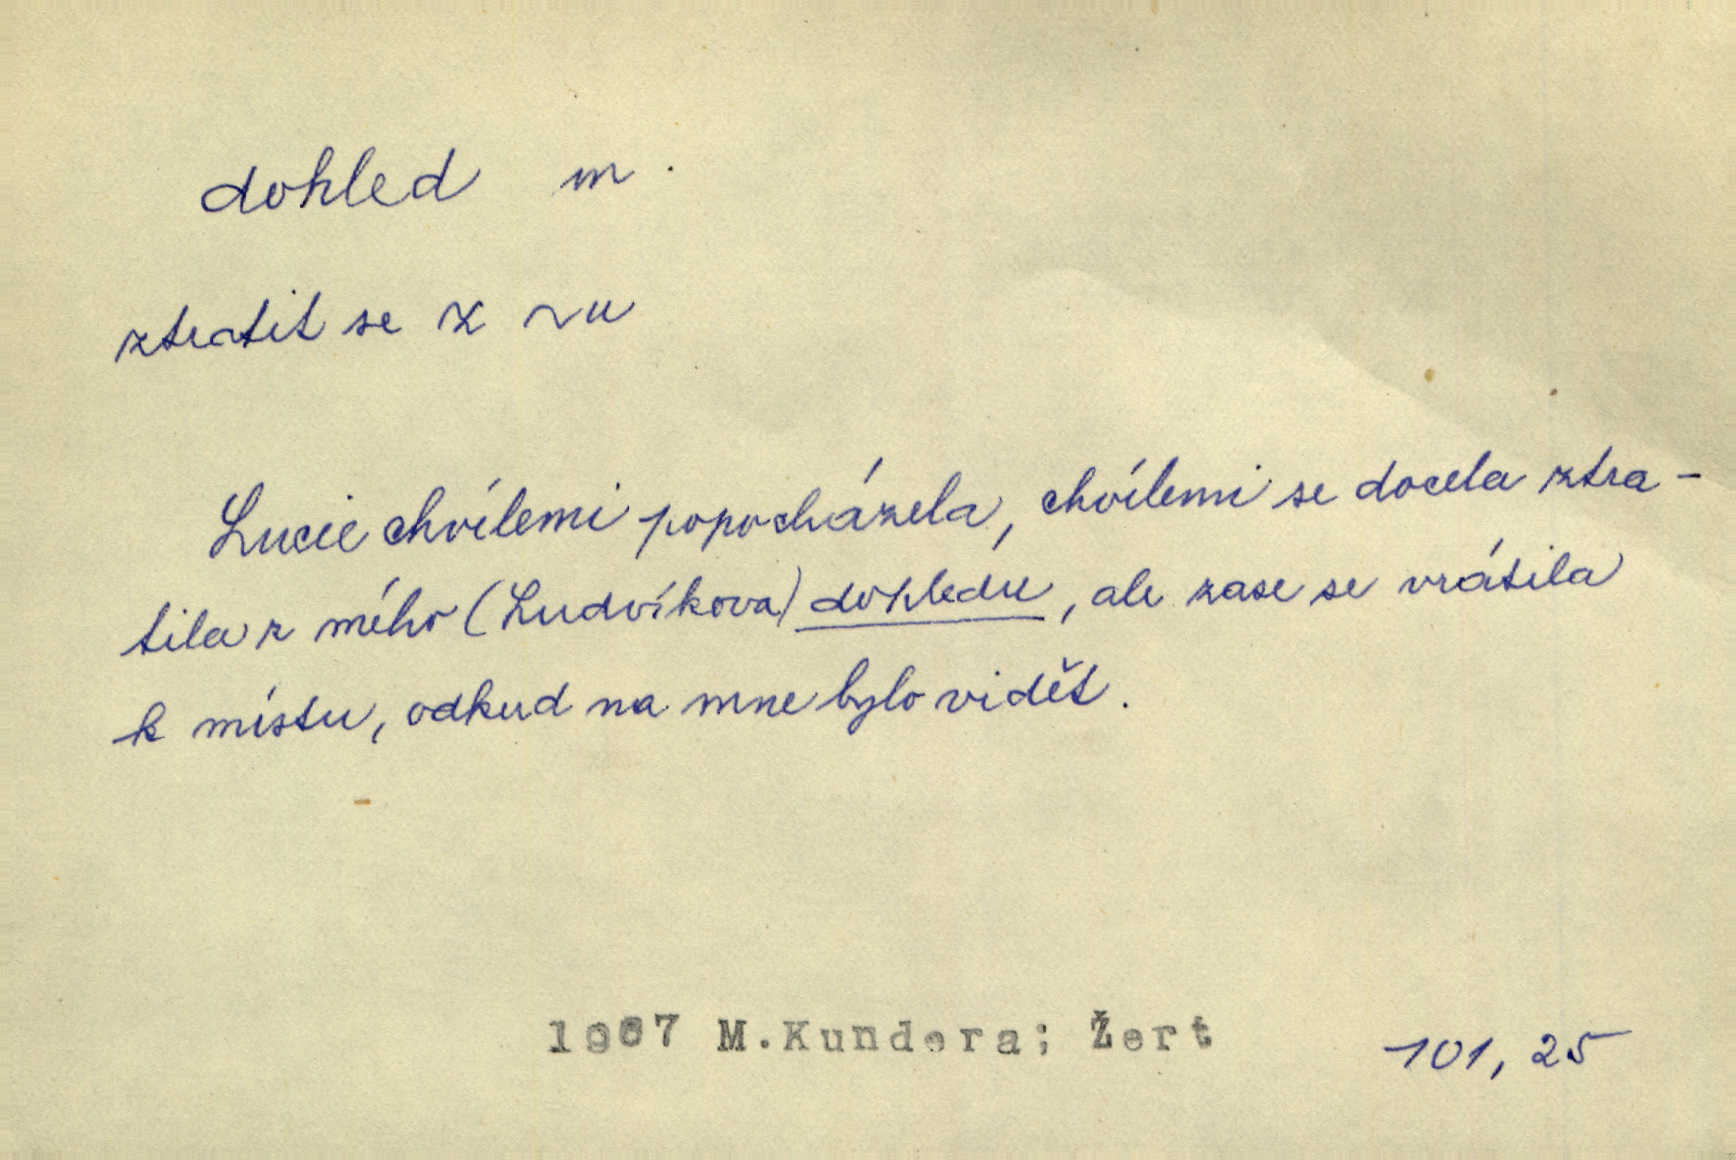 dohled m.
ztratit se z ~u
Lucie chvílemi popocházela, chvílemi se docela ztra-
tila z mého (Ludvíkova) dohledu, ale zase se vrátila
k místu, odkud na mne bylo vidět.
1967 M.Kundera; Žert 101, 25